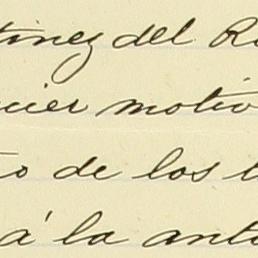 tinez del R
uier motiv
to de los
á la anto